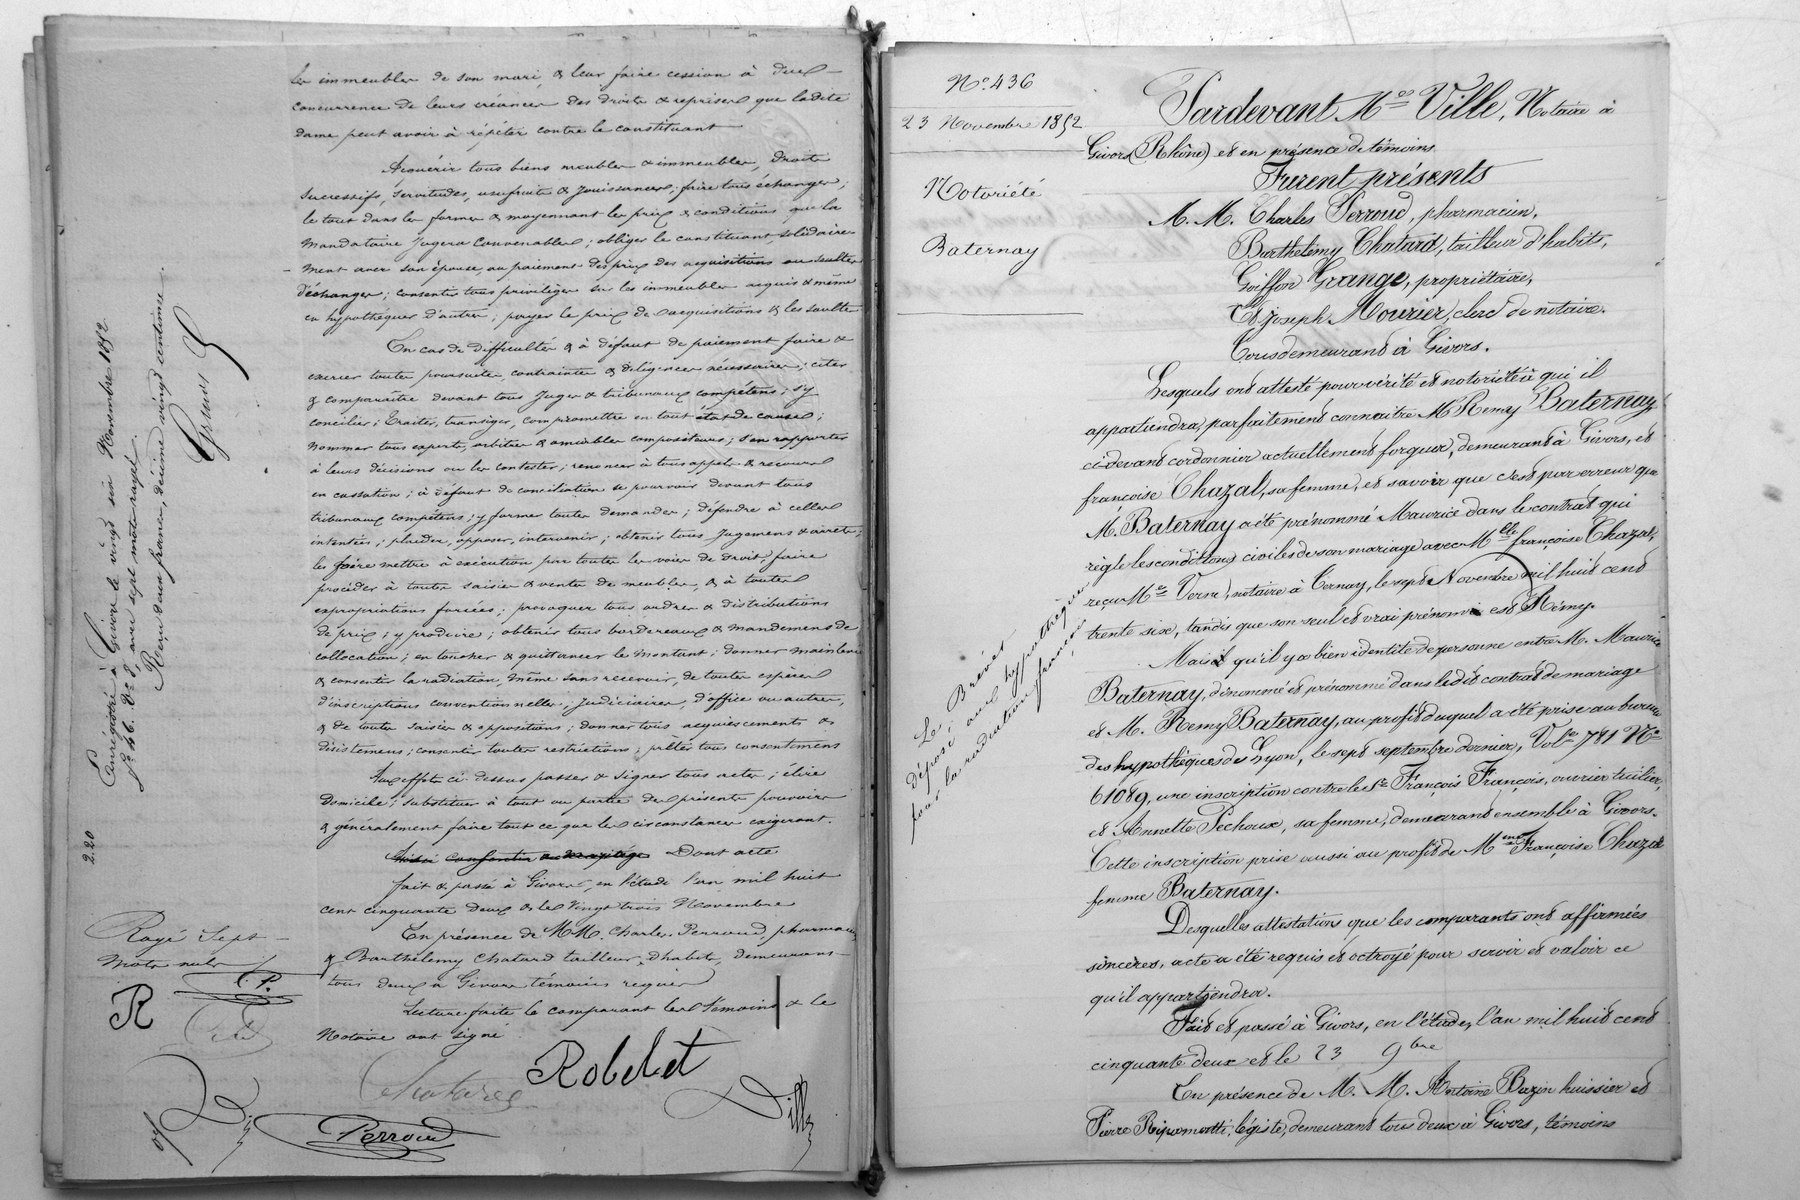 les immeubles de son mari, & leur faire cession à due
concurrence de leurs créances des droits & reprises que ladite
dame peut avoir à répéter contre le constituant
Acquérir tous biens meubles & immeubles, droits
successifs, servitudes, usufruits & jouissances; faire tous échanges;
le tout dans les formes & moyennant les prix & conditions que la
Mandataire jugera convenables; obliger le constituant, solidaire-
-ment avec son épouse, au paiement des prix des acquisitions ou soultes
d'échanges; consentir tous privilèges sur les immeubles acquis & même
en hypothéquer d'autres; payer le prix des acquisitions & les soultes
En cas de difficultés & à défaut de paiement faire &
exercer toutes poursuites, contraintes & diligences nécessaires; citer
& comparaitre devant tous Juges & tribunaux compétens; s'y
concilier; Traiter, transiger, compromettre en tout état de cause;
nommer tous experts, arbitres & amiables compositeurs; s'en rapporter
à leurs décisions ou les contester; renoncer à tous appels & recours
en cassation; à défaut de conciliation se pourvoir devant tous
tribunaux compétens; y former toutes demandes; défendre à celles
intentées; plaider, opposer, intervenir; obtenir tous Jugemens & arrêts;
les faire mettre à exécution par toutes les voies de droit, faire
procéder à toutes saisies & ventes de meubles, & à toutes
expropriations forcées; provoquer tous ordres & distributions
de prix; y produire; obtenir tous bordereaux & mandemens de
collocation; en toucher & quittancer le montant; donner mainlevée
& consentir la radiation, même sans recevoir, de toutes espèces
d'inscriptions conventionnelles, judiciaires, d'office ou autres,
& de toutes saisies & oppositions; donner tous acquiescements &
désistemens; consentir toutes restrictions; prêter tous consentemens
Aux effets ci-dessus passer & signer tous actes; élire
domicile; substituer à tout ou partie des présents pouvoirs
& généralement faire tout ce que les circonstances exigeront.
Dont acte
fait & passé à Givors, en l'étude l'an mil huit
cent cinquante deux & le vingt trois Novembre
En présence de MM. Charles Perroud, pharmacien
& Barthélemy Chatard tailleur d'habits, demeurans
tous deux à Givors témoins requis
Lecture faite le comparant les témoins & le
Notaire ont signé
Chatard
Robelet
Perroud
Ville
Enregistré à Givors le vingt six Novembre 1852
f° 46. V° 8, avec sept mots rayés
Reçu deux francs, décime vingt centimes
2.20
Rayé Sept
mots nuls
C.P.
R
N° 436
23 Novembre 1852
Notoriété
Baternay
Le Brevet
déposé aux hypothèques
pour la radiation françois
Pardevant Me Ville, Notaire à
Givors (Rhône) et en présence de témoins
Furent présents
M. M. Charles Perroud, pharmacien,
Barthélemy Chatard, tailleur d'habits,
Goiffon Grange, propriétaire,
Et Joseph Mourier, clerc de notaire.
Tous demeurant à Givors.
Lesquels ont attesté pour vérité et notoriété à qui il
appartiendra, parfaitement connaitre Mr Remy Baternay
ci-devant cordonnier actuellement forgeur, demeurant à Givors, et
françoise Chazal, sa femme, et savoir que c'est par erreur que
M. Baternay a été prénommé Maurice dans le contrat qui
règle les conditions civiles de son mariage avec Mlle françoise Chazal,
reçu Me Verne, notaire à Ternay, le sept Novembre mil huit cent
trente six, tandis que son seul et vrai prénom est Rémy.
Mais qu'il y a bien identité de personne entre M. Maurice
Baternay, dénommé et prénommé dans ledit contrat de mariage
et M. Remy Baternay, au profit duquel a été prise au bureau
des hypothèques de Lyon, le sept septembre dernier, Vol. 781 N°
61089, une inscription contre le Sr François François, ouvrier tuilier,
et Annette Pechoux, sa femme, demeurant ensemble à Givors.
Cette inscription prise aussi au profit de Mme Françoise Chazal
femme Baternay.
Desquelles attestations que les comparants ont affirmées
sincères, acte a été requis et octroyé pour servir et valoir ce
qu'il appartiendra.
Fait et passé à Givors, en l'étude, l'an mil huit cent
cinquante deux et le 23 9bre
En présence de M. M. Antoine Bazin huissier et
Pierre Ripamonti, légiste, demeurant tous deux à Givors, témoins